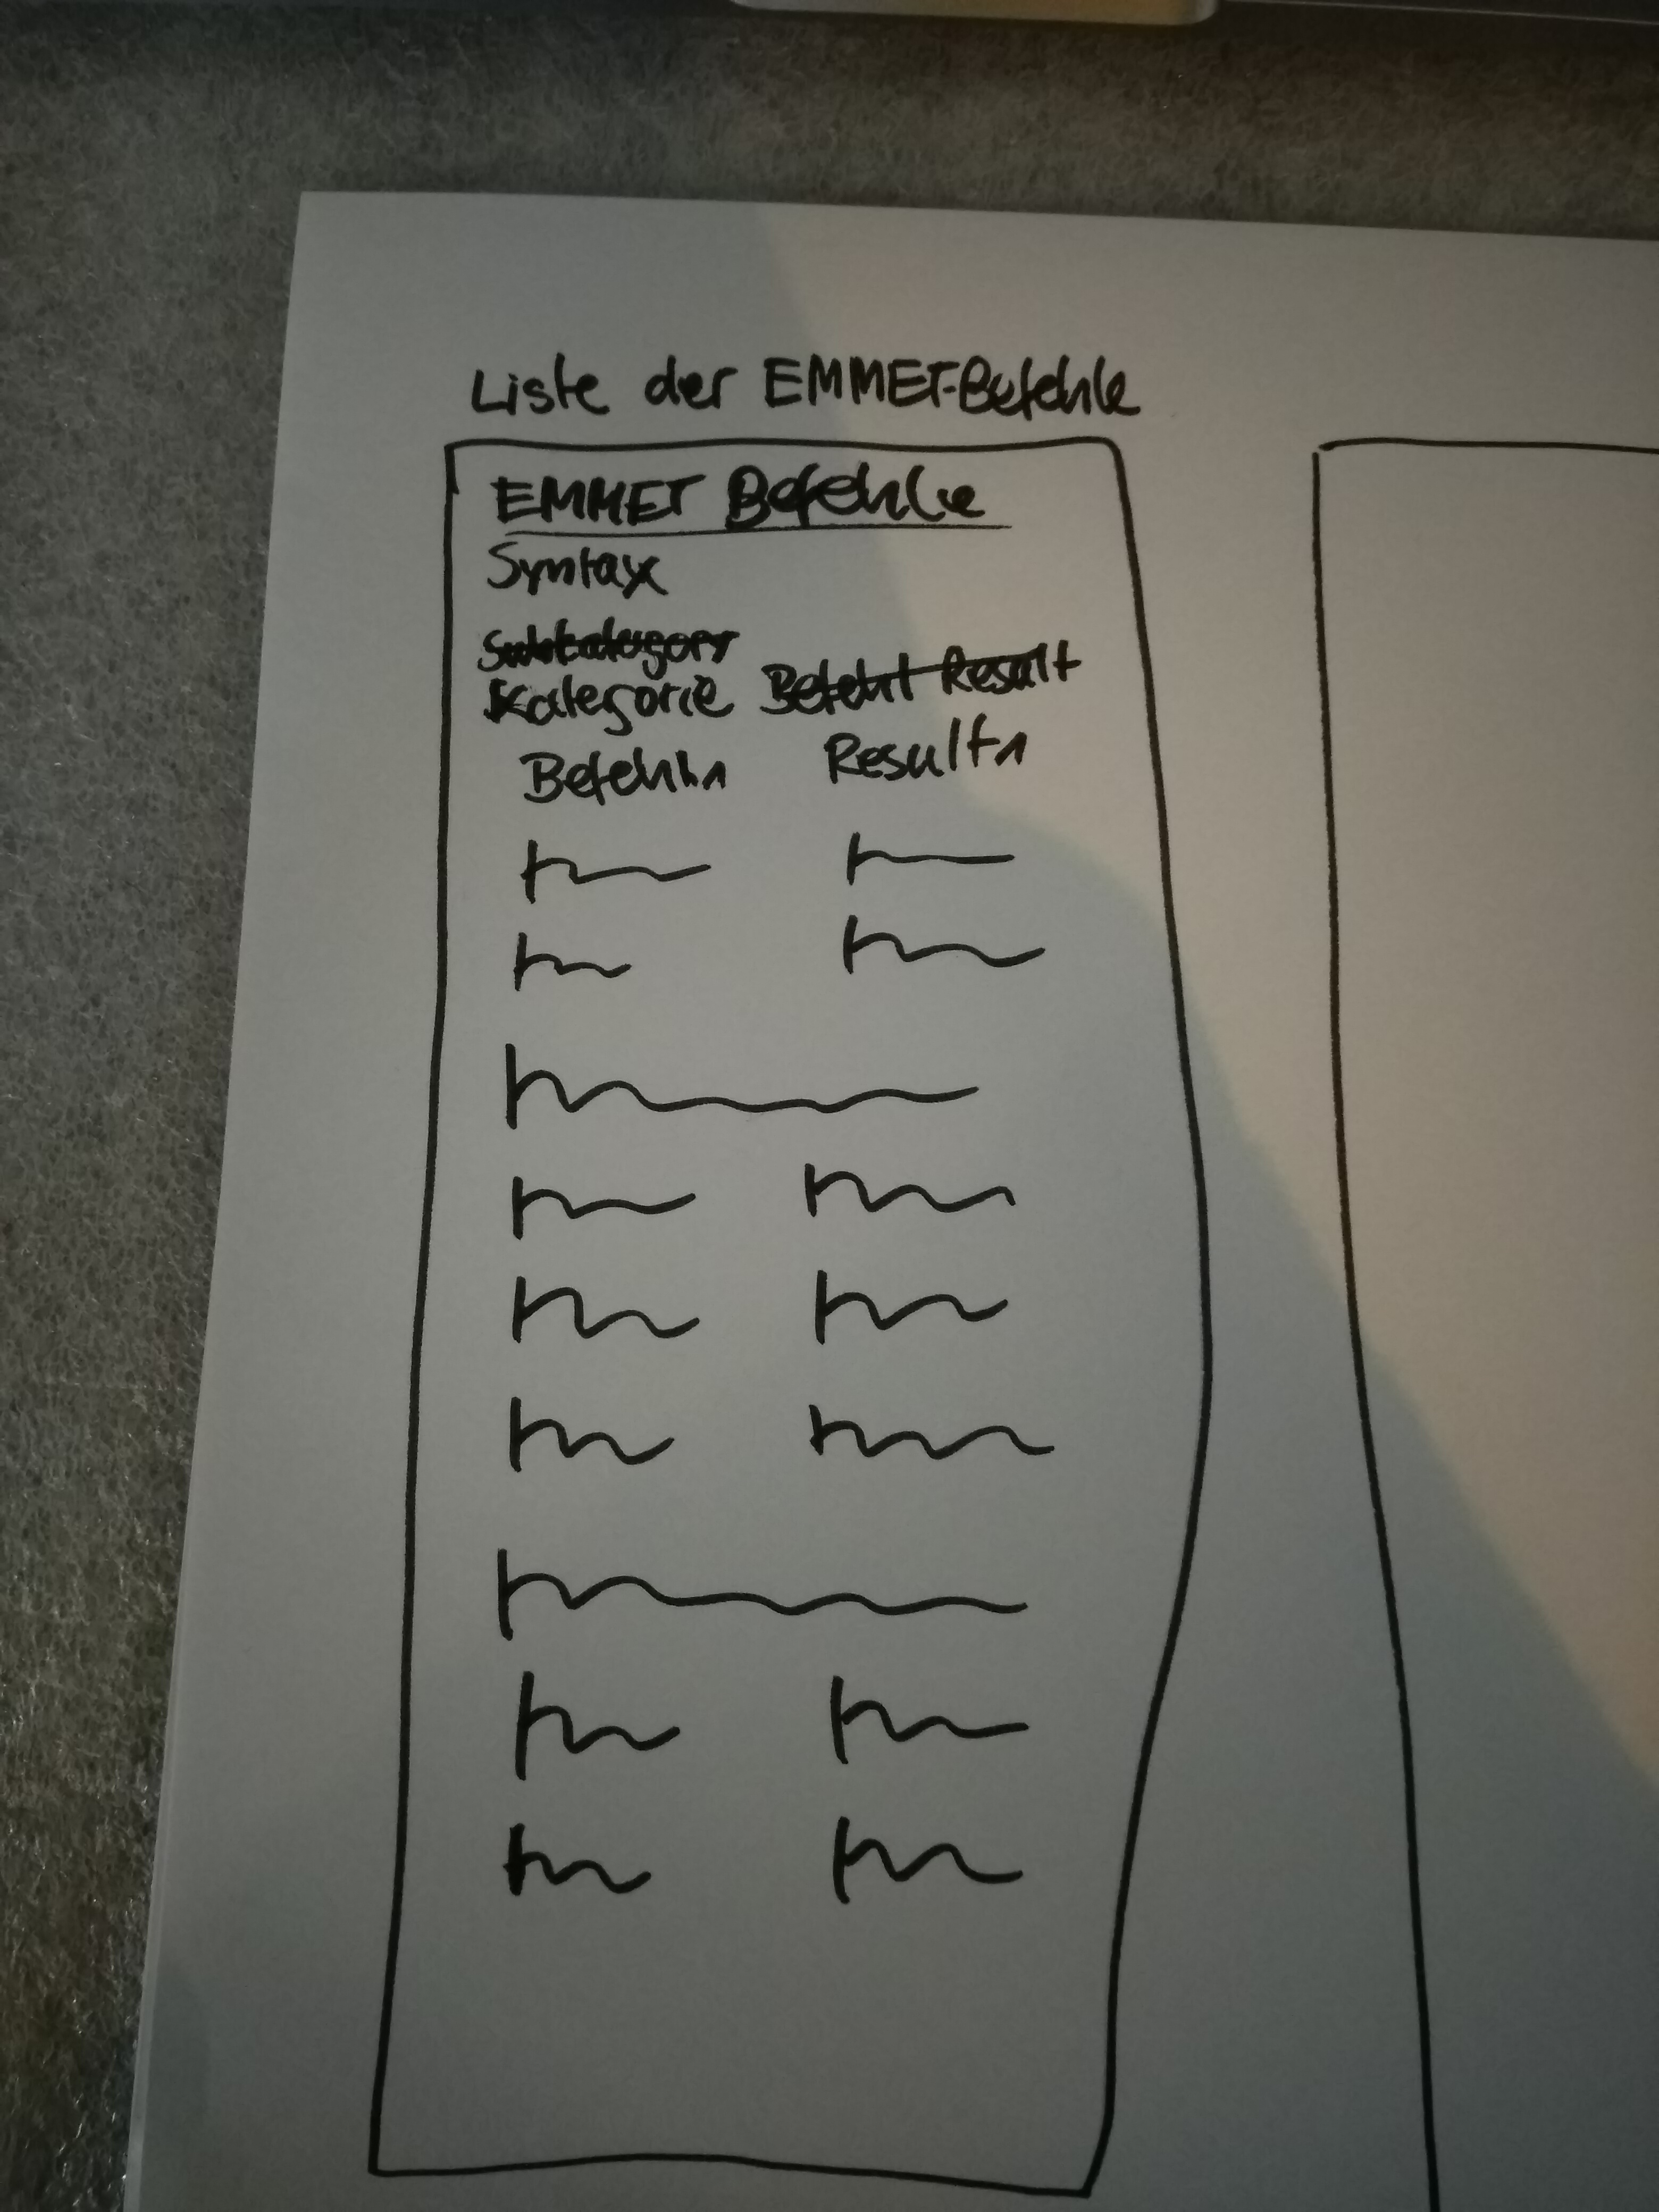 Liste der EMMET-Befehle
EMMET Befehle
Syntax
Subkategory
Kategorie Befehl Result
Befehl 1 Result 1